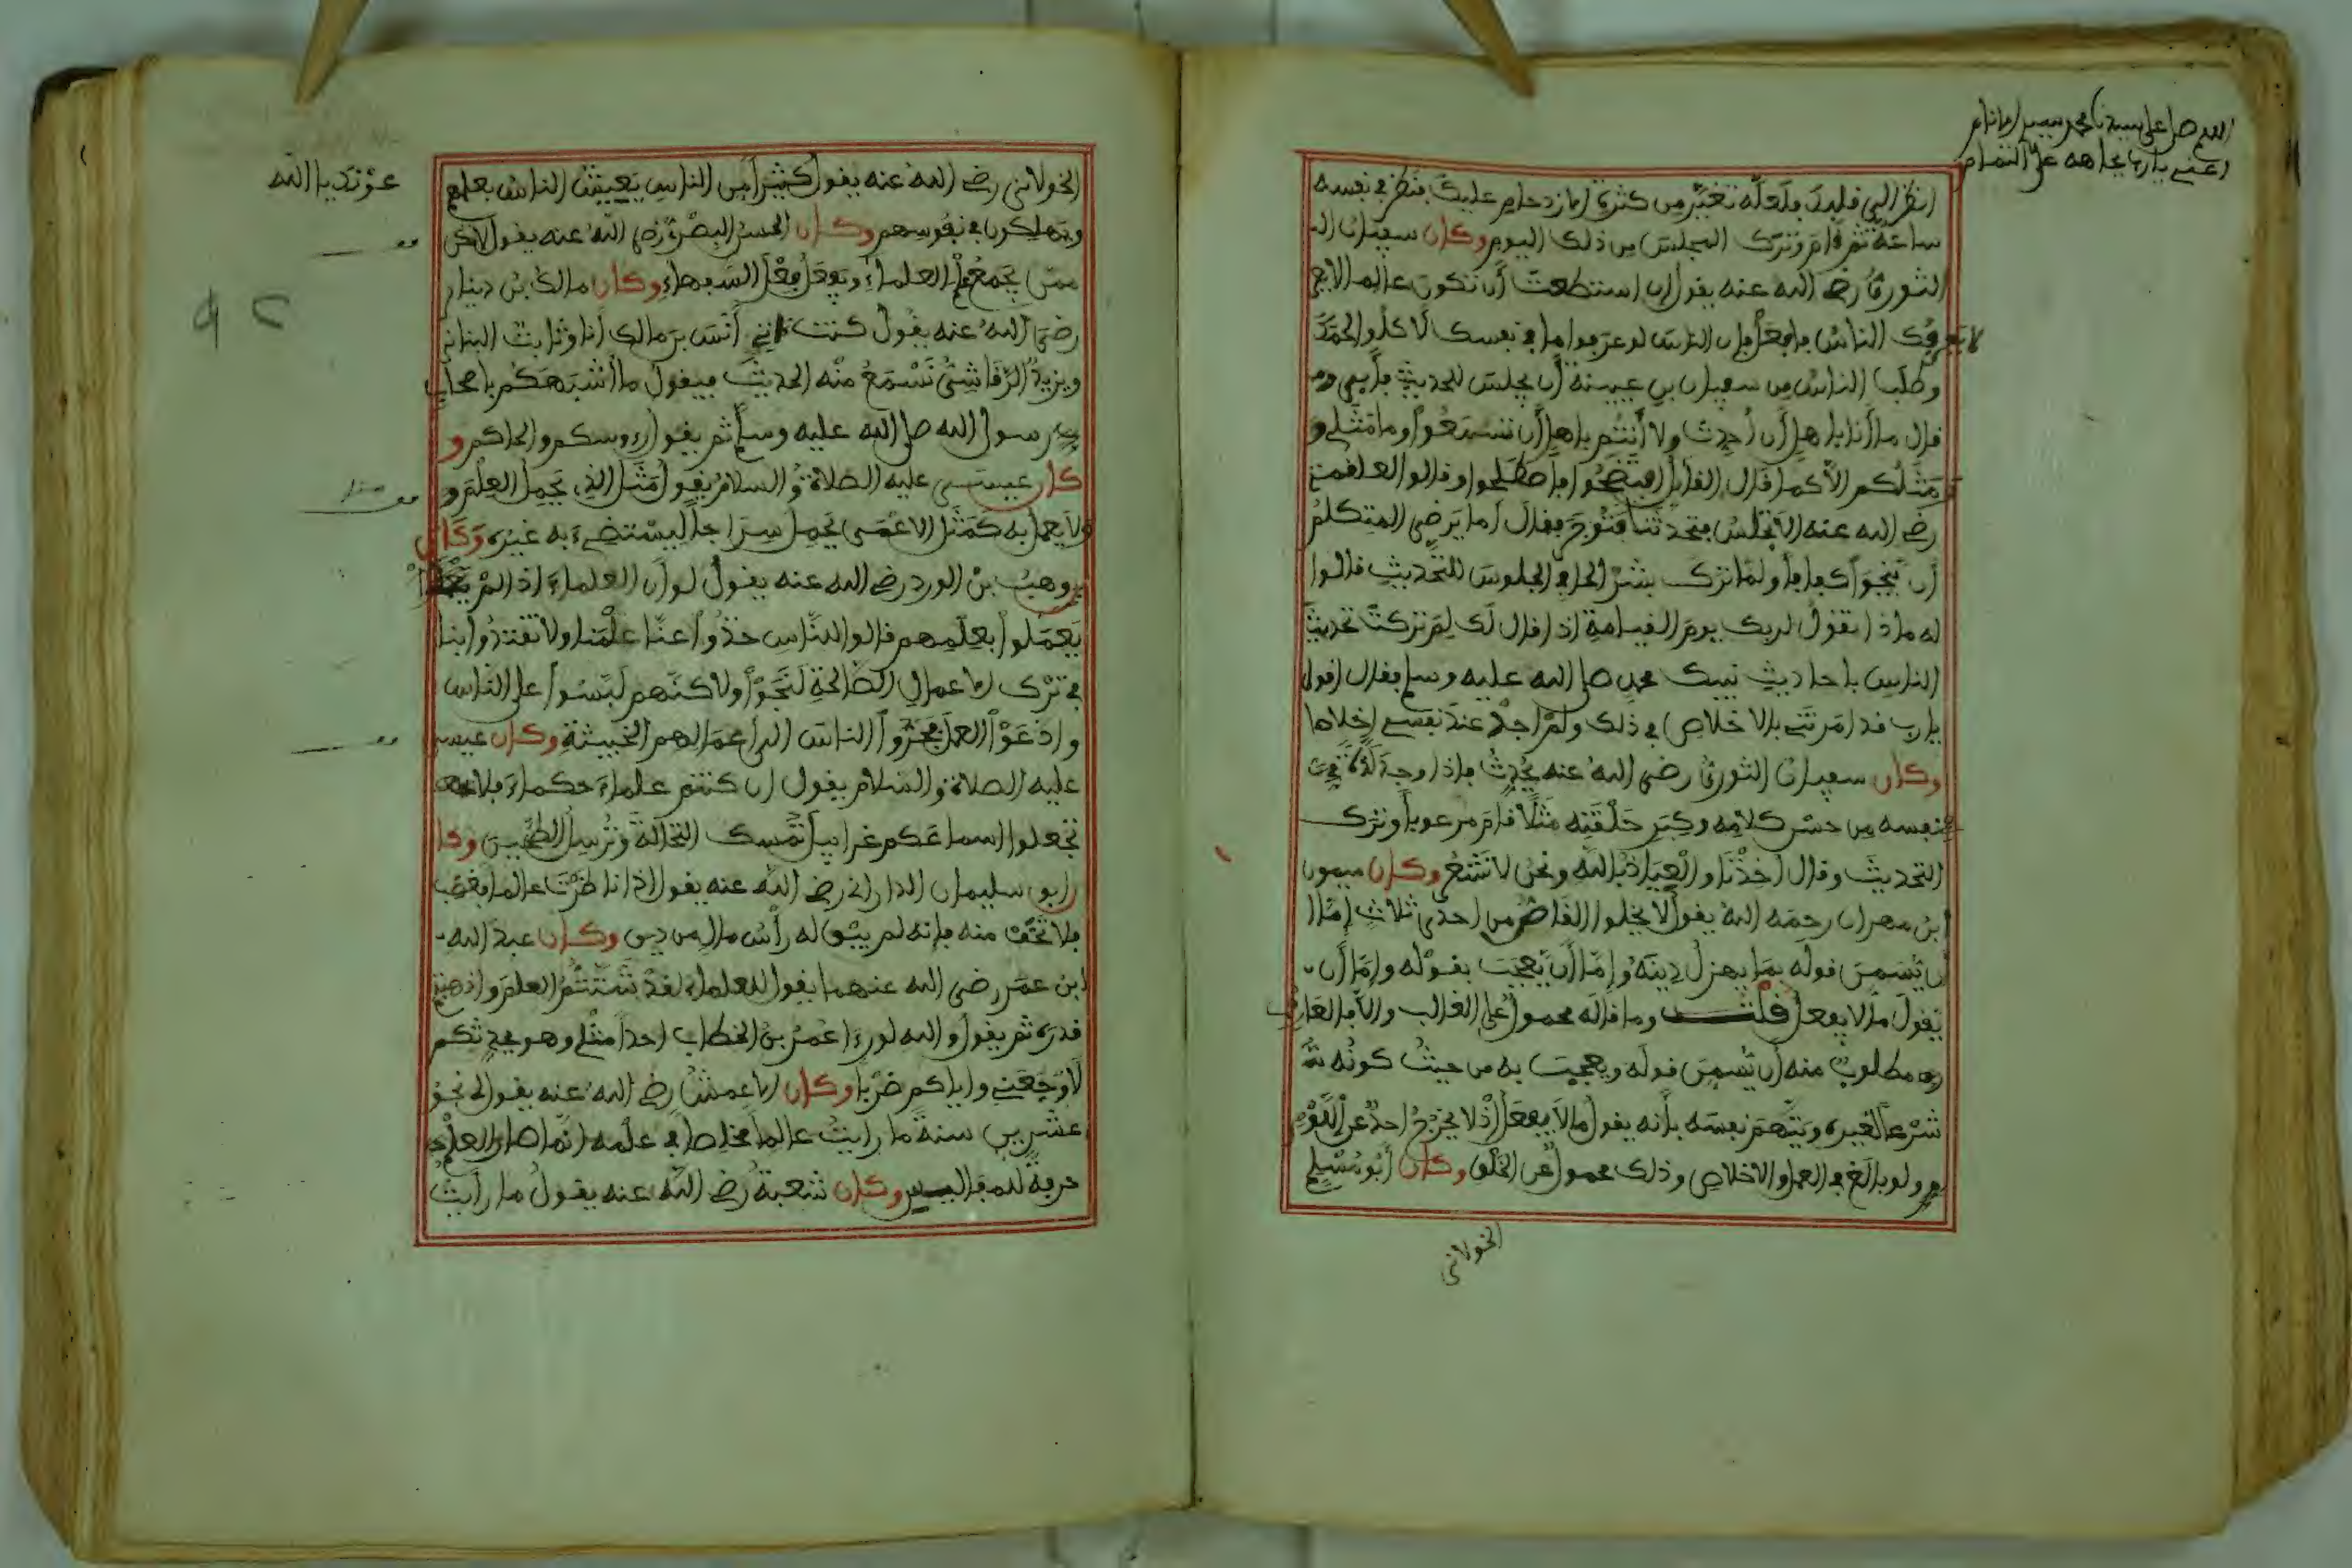 اللهم صل على سيدنا محمد
انظر الى قلبك فلعله تغير من كثرة الازدحام عليك فنظر في نفسه
ساعة ثم قام وترك المجلس من ذلك اليوم وكان سفيان
الثوري رضي الله عنه يقول ان استطعت أن تكون عالما لا
يعرفك الناس فافعل فإن الناس لو عرفوا ما في نفسك لأكلوا لحمك
وطلب الناس من سفيان بن عيينة أن يجلس للحديث فأبى و
قال ما أنا بأهل أن أحدث ولا أنتم بأهل أن تسمعوا وما مثلي و
مثلكم الا كما قال القائل افتضحوا فاصطلحوا وقالوا لعلقمة
رضي الله عنه الا تجلس فتحدثنا فتوجر فقال اما يرضى المتكلم
أن ينجو كفافا ولما ترك بشر الحافي الجلوس للتحديث قالوا
له ماذا تقول لربك يوم القيامة اذا قال لك لم تركت تحديث
الناس باحاديث نبيك محمد صلى الله عليه وسلم فقال اقول
يا رب قد امرتني بالاخلاص في ذلك ولم اجد عند نفسي اخلاصا
وكان سفيان الثوري رضي الله عنه يحدث فاذا وجد لذة في
نفسه من حسن كلامه وكبر حلقته مثلا قام مرعوبا وترك
التحديث وقال أخذنا والعياذ بالله ونحن لا نشعر وكان ميمون
ابن مهران رحمه الله يقول لا يخلوا القاص من احدى ثلاث إما
أن يسمن قوله بما يهزل دينه وإما أن يعجب بقوله وإما أن
يقول ما لا يفعل قلت وما قاله محمول على الغالب والا فالعارف
مطلوب منه أن يسمن قوله ويعجب به من حيث كونه
شرعا لغيره ويتهم نفسه بأنه يقول ما لا يفعل إذ لا يخرج احد عن اللوم
ولو بالغ في العمل والاخلاص وذلك محمول عن الخلق وكان أبو مسلم
الخولاني
عونك يا الله
الخولاني رضي الله عنه يقول كثيرا من الناس يعيش الناس بعلمهم
ويهلكون في نفوسهم وكان الحسن البصري رضي الله عنه يقول لا تكن
ممن يجمع علم العلماء ويفعل فعل السفهاء وكان مالك بن دينار
رضي الله عنه يقول كنت اتي أنس بن مالك أنا وثابت البناني
ويزيد الرقاشي نسمع منه الحديث فيقول ما أشبهكم بأصحاب
رسول الله صلى الله عليه وسلم ثم يقول رءوسكم والحاكم و
كان عيسى عليه الصلاة والسلام يقول مثل الذي يحمل العلم و
ولا يعمل به كمثل الاعمى يحمل سراجا ليستضيء به غيره وكان
وهيب بن الورد رضي الله عنه يقول لو أن العلماء اذا لم
يعملوا بعلمهم قالوا للناس خذوا عنا علمنا ولا تقتدوا بنا
في ترك الاعمال الصالحة لنجوا ولاكنهم لبسوا على الناس
وادعوا العمل فجروا الناس الى اعمالهم الخبيثة وكان عيسى
عليه الصلاة والسلام يقول ان كنتم علماء حكماء فلا
تجعلوا اسماعكم غرابيل تمسك النخالة وترسل الطحين وكا
ن أبو سليمان الداراني رضي الله عنه يقول اذا ناظرت عالما فغضب
فلا تخف منه فإنه لم يبق له رأس مال من دين وكان عبد الله
ابن عمر رضي الله عنهما يقول للعلماء لقد شنتم العلم واذهبتم
قدره ثم يقول والله لو رءا عمر بن الخطاب احدا مثلي وهو يحدثكم
لأوجعني واياكم ضربا وكان الاعمش رضي الله عنه يقول لي نحو
عشرين سنة ما رايت عالما مخلصا في علمه انما صار العلم
حرفة للمفاليس وكان شعبة رضي الله عنه يقول ما رأيت